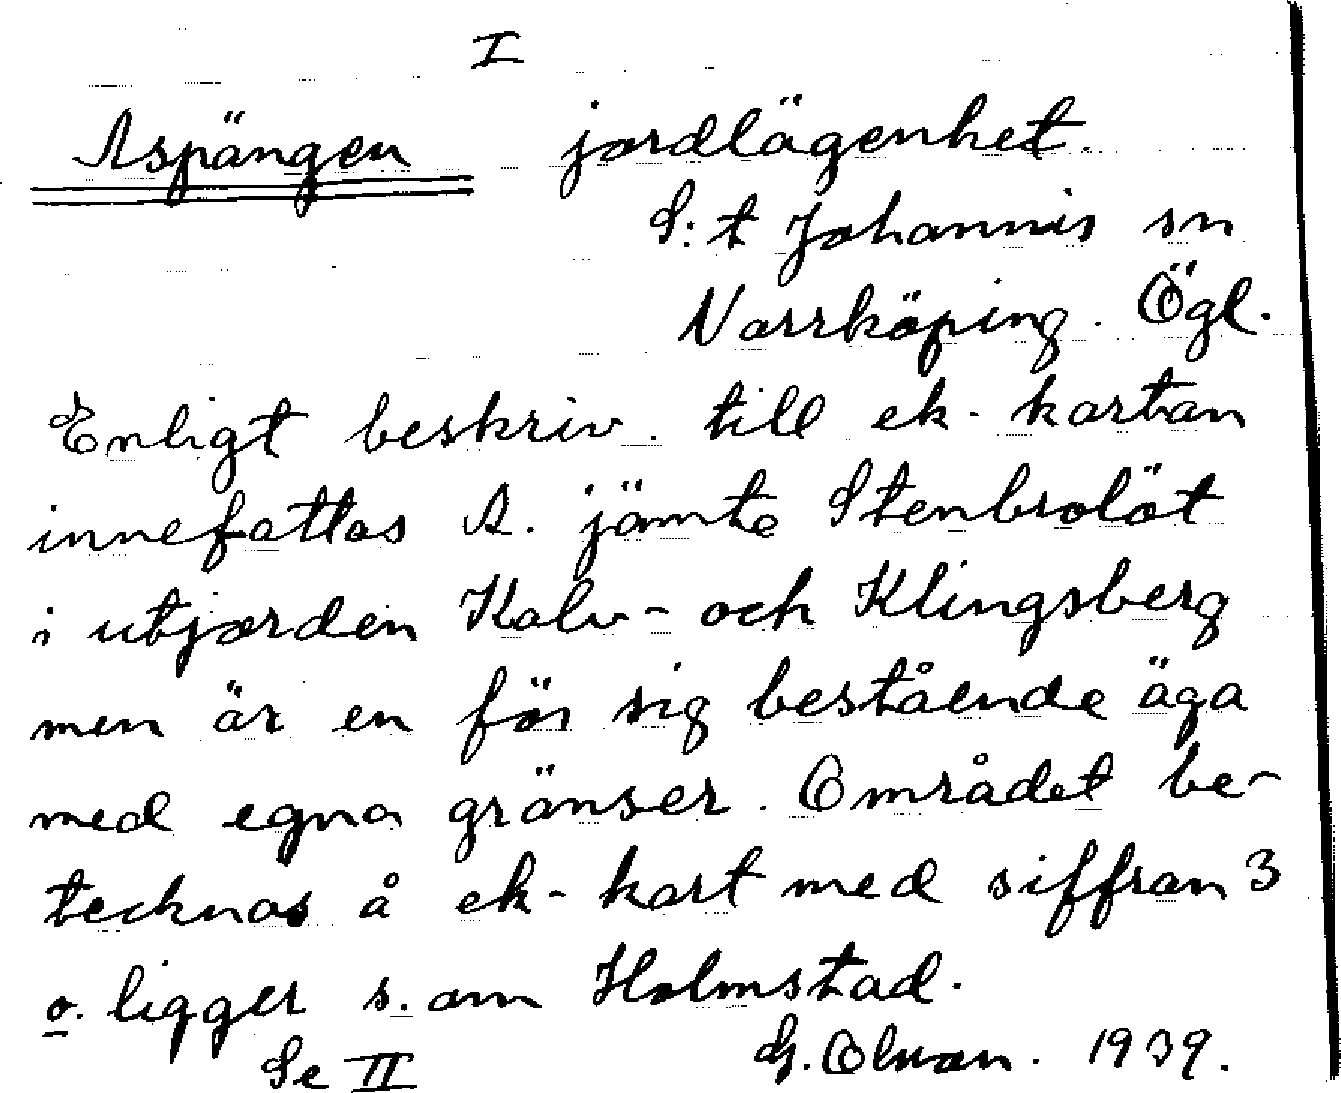 I
Aspängen jordlägenhet.
S:t Johannis sn
Norrköping. Ögl.
Enligt beskriv. till ek-kartan
innefattas A. jämte Stenbrolöt
i utjorden Kalv- och Klingsberg
men är en för sig bestående äga
med egna gränser. Området be-
tecknas å ek-kart med siffran 3
o. ligger s. om Holmstad.
Se II G. Olsson. 1939.